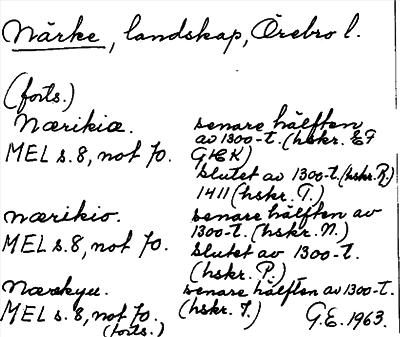 Närke, landskap, Örebro l.
(forts.)
Nærikiæ. senare hälften
av 1300-t. (hskr. EF
MEL s. 8, not 70. GHK)
slutet av 1300-t. (hskr. R)
1411 (hskr. T.)
nærikio. senare hälften av
1300-t. (hskr. N.)
MEL s. 8, not 70. slutet av 1300-t.
(hskr. P.)
Nærkyu. senare hälften av 1300-t.
MEL s. 8, not 70. (hskr. I.)
(forts.) G.E. 1963.